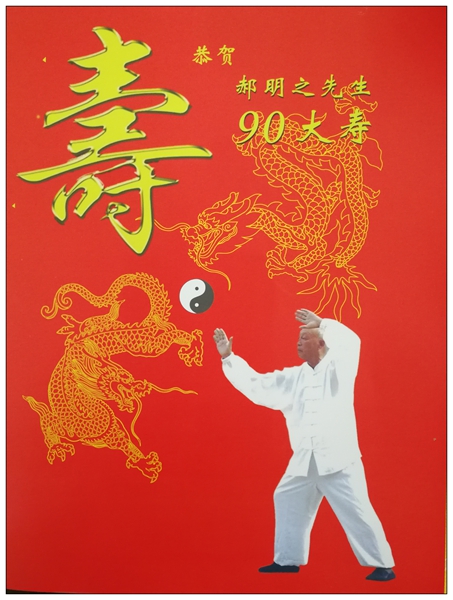 壽
恭贺
郝明之先生
90大寿